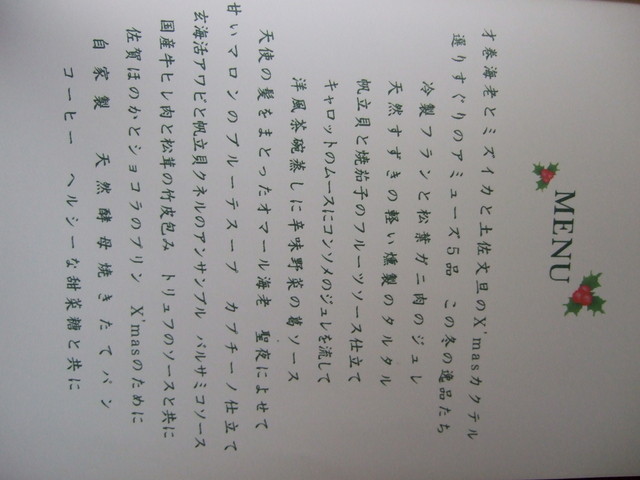 MENU
才巻海老とミズイカと土佐文旦のX'masカクテル
選りすぐりのアミューズ5品 この冬の逸品たち
冷製フランと松葉ガニ肉のジュレ
天然すずきの軽い燻製のタルタル
帆立貝と焼茄子のフルーツソース仕立て
キャロットのムースにコンソメのジュレを流して
洋風茶碗蒸しに辛味野菜の葛ソース
天使の髪をまとったオマール海老 聖夜によせて
甘いマロンのブルーテスープ カプチーノ仕立て
玄海活アワビと帆立貝クネルのアンサンブル バルサミコソース
国産牛ヒレ肉と松茸の竹皮包み トリュフのソースと共に
佐賀ほのかとショコラのプリン X'masのために
自家製 天然酵母焼きたてパン
コーヒー ヘルシーな甜菜糖と共に